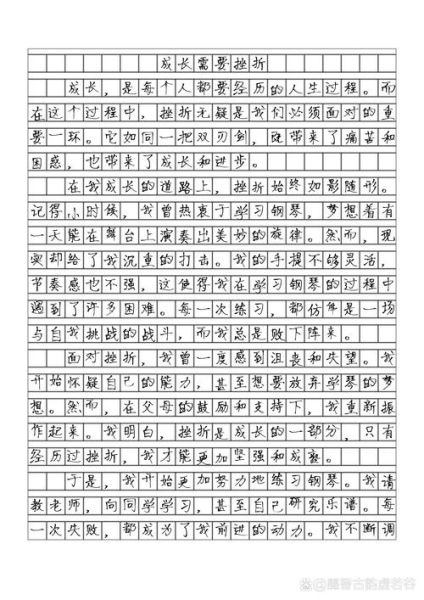 成长需要挫折
成长，是每个人都要经历的人生过程。而
在这个过程中，挫折无疑是我们必须面对的重
要一环。它如同一把双刃剑，既带来了痛苦和
困惑，也带来了成长和进步。
在我成长的道路上，挫折始终如影随形。
记得小时候，我曾热衷于学习钢琴，梦想着有
一天能在舞台上演奏出美妙的旋律。然而，现
实却给了我沉重的打击。我的手指不够灵活，
节奏感也不强，这使得我在学习钢琴的过程中
遇到了许多困难。每一次练习，都仿佛是一场
与自我挑战的战斗，而我总是败下阵来。
面对挫折，我曾一度感到沮丧和失望。我
开始怀疑自己的能力，甚至想要放弃学琴的梦
想。然而，在父母的鼓励和支持下，我重新振
作起来。我明白，挫折是成长的一部分，只有
经历过挫折，我才能更加坚强和成熟。
于是，我开始更加努力地练习钢琴。我请
教老师，向同学学习，甚至自己研究乐谱。每
一次失败，都成为了我前进的动力。我不断调
@魔晋古韵虚若谷